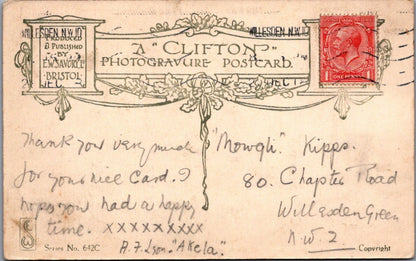 WILLESDEN N.W.10
WILLESDEN N.W.10
PRODUCED
& PUBLISHED
BY
BRISTOL
A "CLIFTON"
PHOTOGRAVURE POSTCARD
DEC
DEC
Thank you very much
for your nice Card. I
hope you had a happy
time. xxxxxxxxx
"Akela".
"Mowgli" Kipps.
80. Chapter Road
Willesden Green
N.W.2
Series No. 642C
Copyright